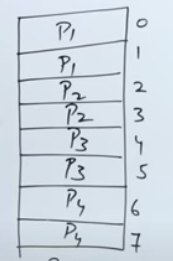 P1 0
P1 1
P2 2
P2 3
P3 4
P3 5
P4 6
P4 7